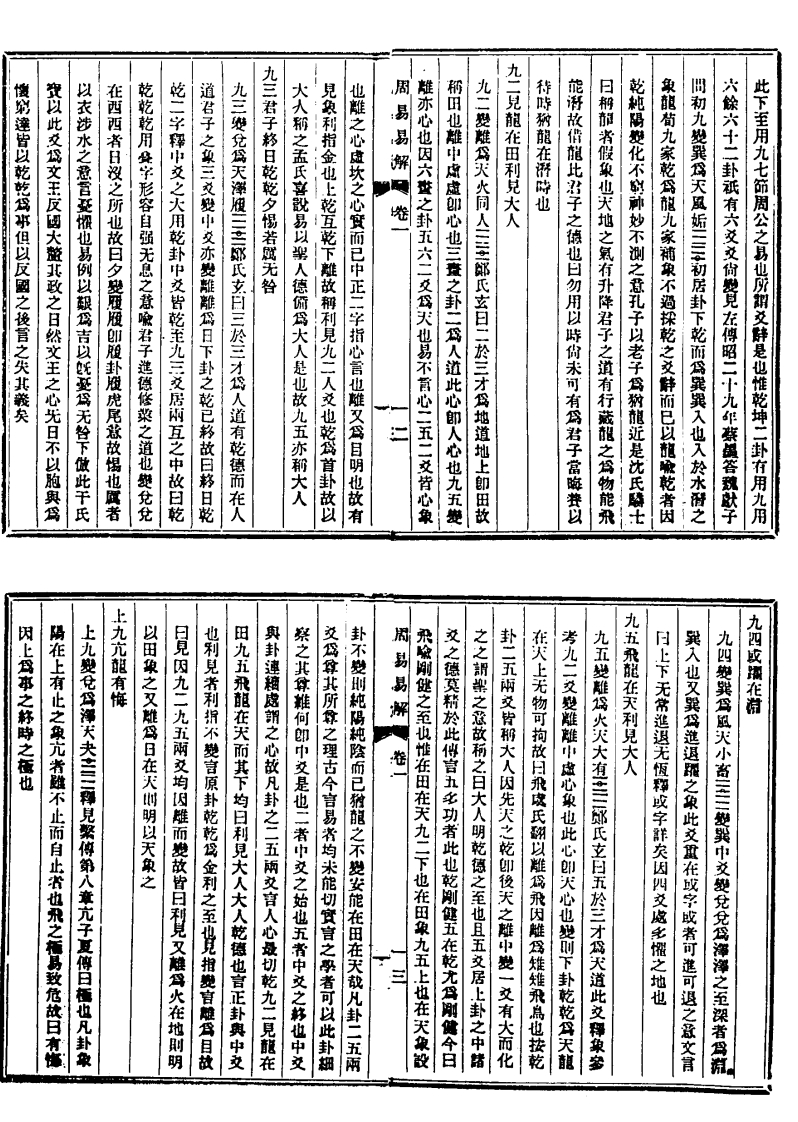 此下至用九七節周公之易也所謂爻辭是也惟乾坤二卦有用九用
六餘六十二卦祇有六爻爻尙變見左傳昭二十九年蔡墨答魏獻子
問初九變巽爲天風姤初居卦下乾而爲巽巽入也入於水潛之
象龍荀九家乾爲龍九家補象不過採乾之爻辭而已以龍喩乾者因
乾純陽變化不窮神妙不測之意孔子以老子爲猶龍近是沈氏驎士
曰稱龍者假象也天地之氣有升降君子之道有行藏龍之爲物能飛
能潛故借龍比君子之德也曰勿用以時尙未可有爲君子當晦養以
待時猶龍在潛時也
九二見龍在田利見大人
九二變離爲天火同人鄭氏玄曰二於三才爲地道地上卽田故
稱田也離中虛虛卽心也三畫之卦二爲人道此心卽人心也九五變
離亦心也因六畫之卦五六二爻爲天也易不言心二五二爻皆心象
周易易解 卷一 一二
也離之心虛坎之心實而已中正二字指心言也離又爲目明也故有
見象利指金也上乾互乾下離故稱利見九二人爻也乾爲首卦故以
大人稱之孟氏喜說易以聖人德備爲大人是也故九五亦稱大人
九三君子終日乾乾夕惕若厲无咎
九三變兌爲天澤履鄭氏玄曰三於三才爲人道有乾德而在人
道君子之象三爻變中爻亦變離離爲日下卦之乾已終故曰終日乾
乾二字釋中爻之大用乾卦中爻皆乾至九三爻居兩互之中故曰乾
乾乾乾用叠字形容自强无息之意喩君子進德修業之道也變兌兌
在西西者日沒之所也故曰夕變履履卽履卦履虎尾意故惕也厲者
以衣涉水之意言憂懼也易例以艱爲吉以旣憂爲无咎下倣此干氏
寶以此爻爲文王反國大釐其政之日然文王之心无日不以胞與爲
懷窮達皆以乾乾爲事但以反國之後言之失其義矣
九四或躍在淵
九四變巽爲風天小畜變巽中爻變兌兌爲澤澤之至深者爲淵
巽入也又巽爲進退躍之象此爻重在或字或者可進可退之意文言
曰上下无常進退无恆釋或字詳矣因四爻處多懼之地也
九五飛龍在天利見大人
九五變離爲火天大有鄭氏玄曰五於三才爲天道此爻釋象參
考九二爻變離離中虛心象也此心卽天心也變則下卦乾乾爲天龍
在天上无物可拘故曰飛虞氏翻以離爲飛因離爲雉雉飛鳥也按乾
卦二五兩爻皆稱大人因先天之乾卽後天之離中變一爻有大而化
之之謂聖之意故稱之曰大人明乾德之至也且五爻居上卦之中諸
爻之德莫精於此傳言五多功者此也乾剛健五在乾尤爲剛健今曰
飛喩剛健之至也惟在田在天九二下也在田象九五上也在天象設
周易易解 卷一 一三
卦不變則純陽純陰而已猶龍之不變安能在田在天哉凡卦二五兩
爻爲尊其所尊之理古今言易者均未能切實言之學者可以此卦細
察之其尊維何卽中爻是也二者中爻之始也五者中爻之終也中爻
與卦連續處謂之心故凡卦之二五兩爻言人心最切乾九二見龍在
田九五飛龍在天而其下均曰利見大人大人乾德也言正卦與中爻
也利見者利指不變言原卦乾乾爲金利之至也見指變言離爲目故
曰見因九二九五兩爻均因離而變故皆曰利見又離爲火在地則明
以田象之又離爲日在天則明以天象之
上九亢龍有悔
上九變兌爲澤天夬釋見繫傳第八章亢子夏傳曰極也凡卦象
陽在上有止之象亢者雖不止而自止者也飛之極易致危故曰有悔
因上爲事之終時之極也